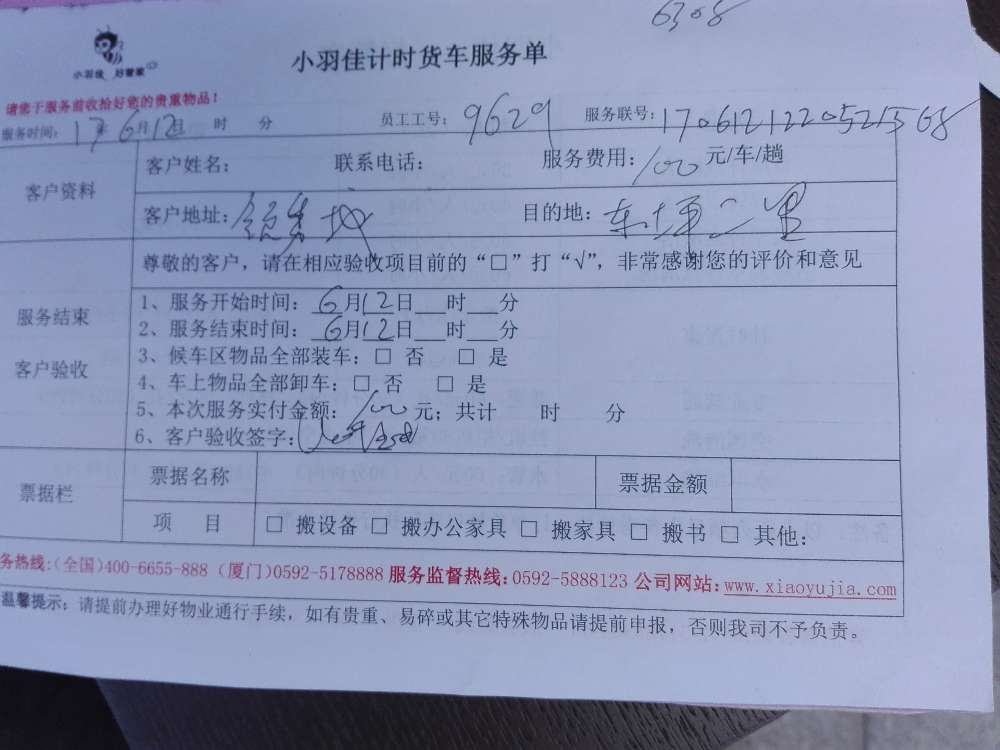 6308
小羽佳 好管家
小羽佳计时货车服务单
请您于服务前收拾好您的贵重物品!
服务时间: 17年6月12日 时 分 员工工号: 9629 服务联号: 1706121220521568
客户资料
客户姓名: 联系电话: 服务费用: 100元/车/趟
客户地址: 目的地: 东坪二里
尊敬的客户,请在相应验收项目前的“□”打“√”,非常感谢您的评价和意见
服务结束
客户验收
1、服务开始时间: 6月12日 时 分
2、服务结束时间: 6月12日 时 分
3、候车区物品全部装车: □ 否 □ 是
4、车上物品全部卸车: □ 否 □ 是
5、本次服务实付金额: 100元; 共计 时 分
6、客户验收签字:
票据栏
票据名称 票据金额
项 目 □ 搬设备 □ 搬办公家具 □ 搬家具 □ 搬书 □ 其他:
务热线:(全国)400-6655-888 (厦门)0592-5178888 服务监督热线:0592-5888123 公司网站:www.xiaoyujia.com
温馨提示: 请提前办理好物业通行手续,如有贵重、易碎或其它特殊物品请提前申报,否则我司不予负责。